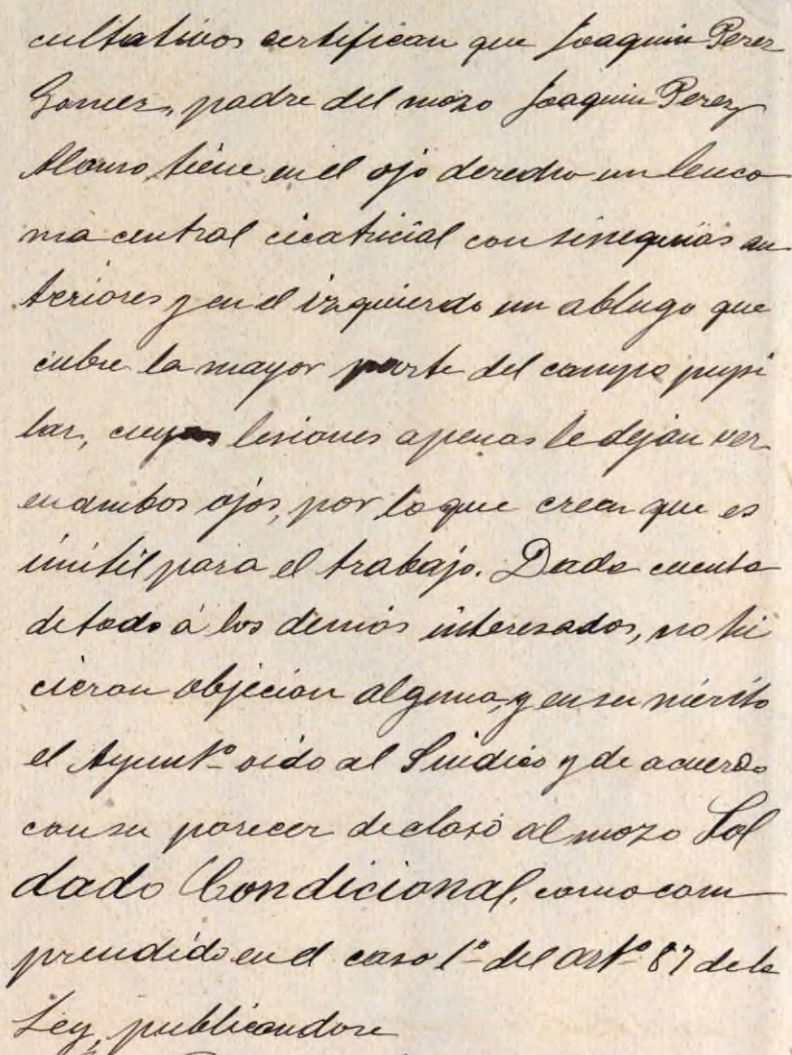 cultativos certifican que Joaquin Perez
Gomez, padre del mozo Joaquin Perez
Alonso tiene en el ojo derecho un leuco
ma central cicatricial con sinequias an
teriores y en el izquierdo un albugo que
cubre la mayor parte del campo pupi
lar, cuyas lesiones apenas le dejan ver
en ambos ojos, por lo que creen que es
inútil para el trabajo. Dada cuenta
de todo á los demás interesados, no hi
cieron objecion alguna, y en su mérito
el Ayuntº oido al Sindico y de acuerdo
con su parecer declaró al mozo Sol
dado Condicional, como com
prendido en el caso 1º del artº 87 de la
Ley, publicandose